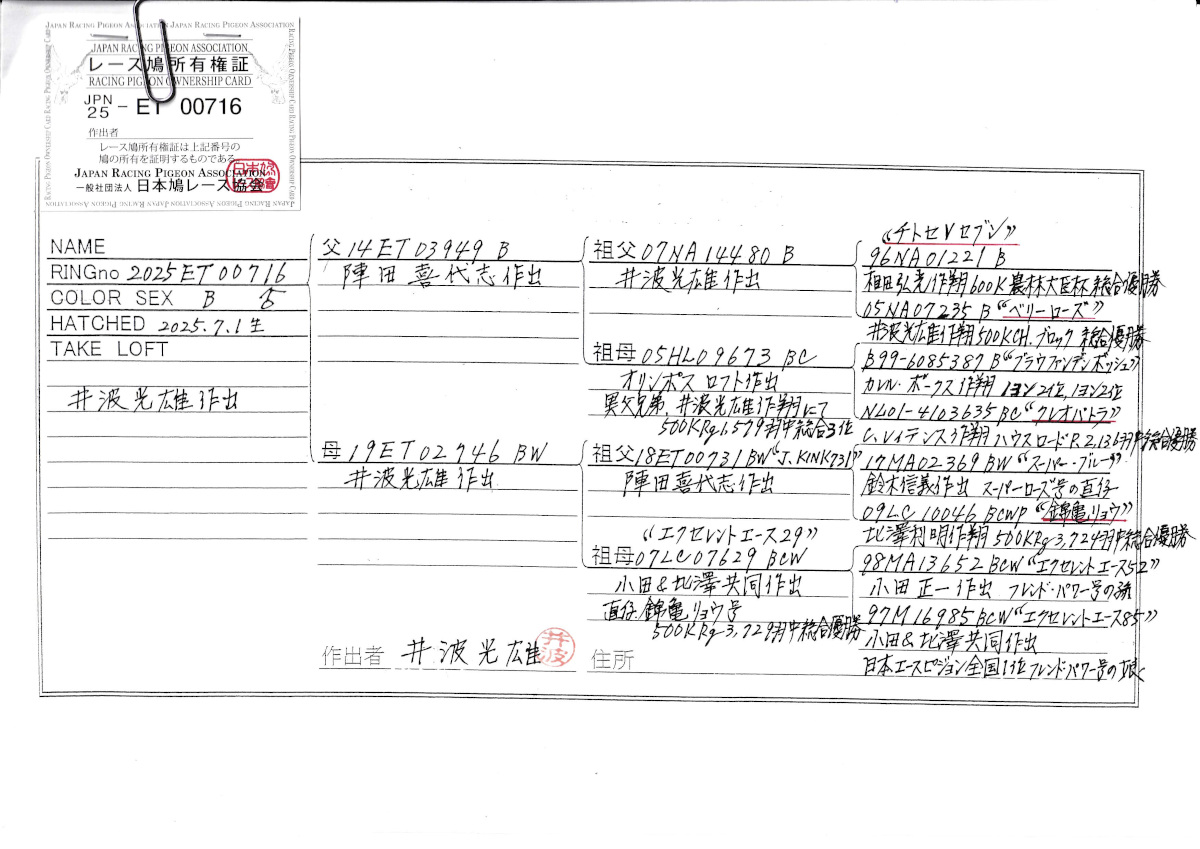 JAPAN RACING PIGEON ASSOCIATION JAPAN RACING PIGEON ASSOCIATION
JAPAN RACING PIGEON ASSOCIATION
レース鳩所有権証
RACING PIGEON OWNERSHIP CARD
JPN
25 - ET 00716
作出者
レース鳩所有権証は上記番号の
鳩の所有を証明するものである。
JAPAN RACING PIGEON ASSOCIATION
一般社団法人 日本鳩レース協会
NAME
RINGno 2025ET00716
COLOR SEX B ♂
HATCHED 2025.7.1生
TAKE LOFT
井波光雄作出
父14ET03949 B
陣田喜代志作出
母19ET02746 BW
井波光雄作出
作出者 井波光雄
井波
祖父07NA14480 B
井波光雄作出
祖母05HL09673 BC
オリンポス ロフト作出
異父兄弟、井波光雄作翔にて
500KRg1,579羽中総合3位
祖父18ET00731BW"J.KINK731"
陣田喜代志作出
"エクセレントエース29"
祖母07LC07629 BCW
小田&北澤共同作出
直仔.錦亀リョウ号
500KRg3,729羽中総合優勝
住所
"チトセVセブン"
96NA01221 B
相田弘光作翔600K農林大臣杯 総合優勝
05NA07235 B "ベリーローズ"
井波光雄作翔500KCH.ブロック 総合優勝
B99-6085387 B"ブラウファンデンボッシュ"
カレル・ボークス作翔 1ヨン2位,1ヨン2位
NL01-4103635 BC "クレオパトラ"
C,Vイテンス作翔 ハウスロードR.2,136羽中総合優勝
17MA02369 BW "スーパー・ブルー"
鈴木信義作出 スーパーローズ号の直仔
09LC10046 BCWP "錦亀リョウ"
北澤利明作翔500KRg3,724羽中総合優勝
98MA13652 BCW "エクセレントエース52"
小田正一作出 フレンド・パワー号の孫
97M16985BCW"エクセレントエース85"
小田&北澤共同作出
日本エースピジョン全国1位フレンド・パワー号の娘